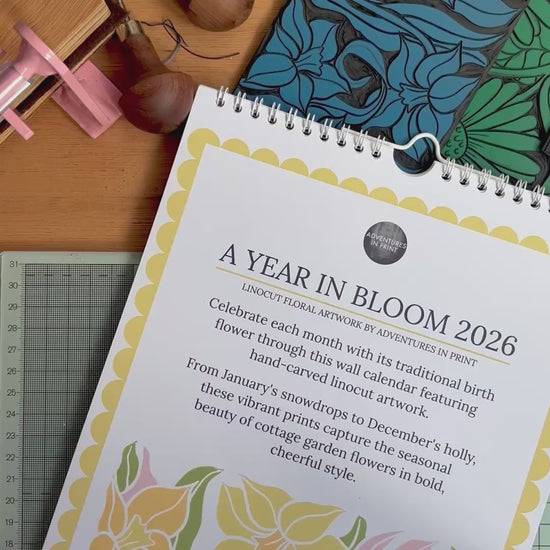 ADVENTURES
IN PRINT
A YEAR IN BLOOM 2026
LINOCUT FLORAL ARTWORK BY ADVENTURES IN PRINT
Celebrate each month with its traditional birth
flower through this wall calendar featuring
hand-carved linocut artwork.
From January's snowdrops to December's holly,
these vibrant prints capture the seasonal
beauty of cottage garden flowers in bold,
cheerful style.
31
30
29
28
27
26
25
24
23
22
21
20
19
18